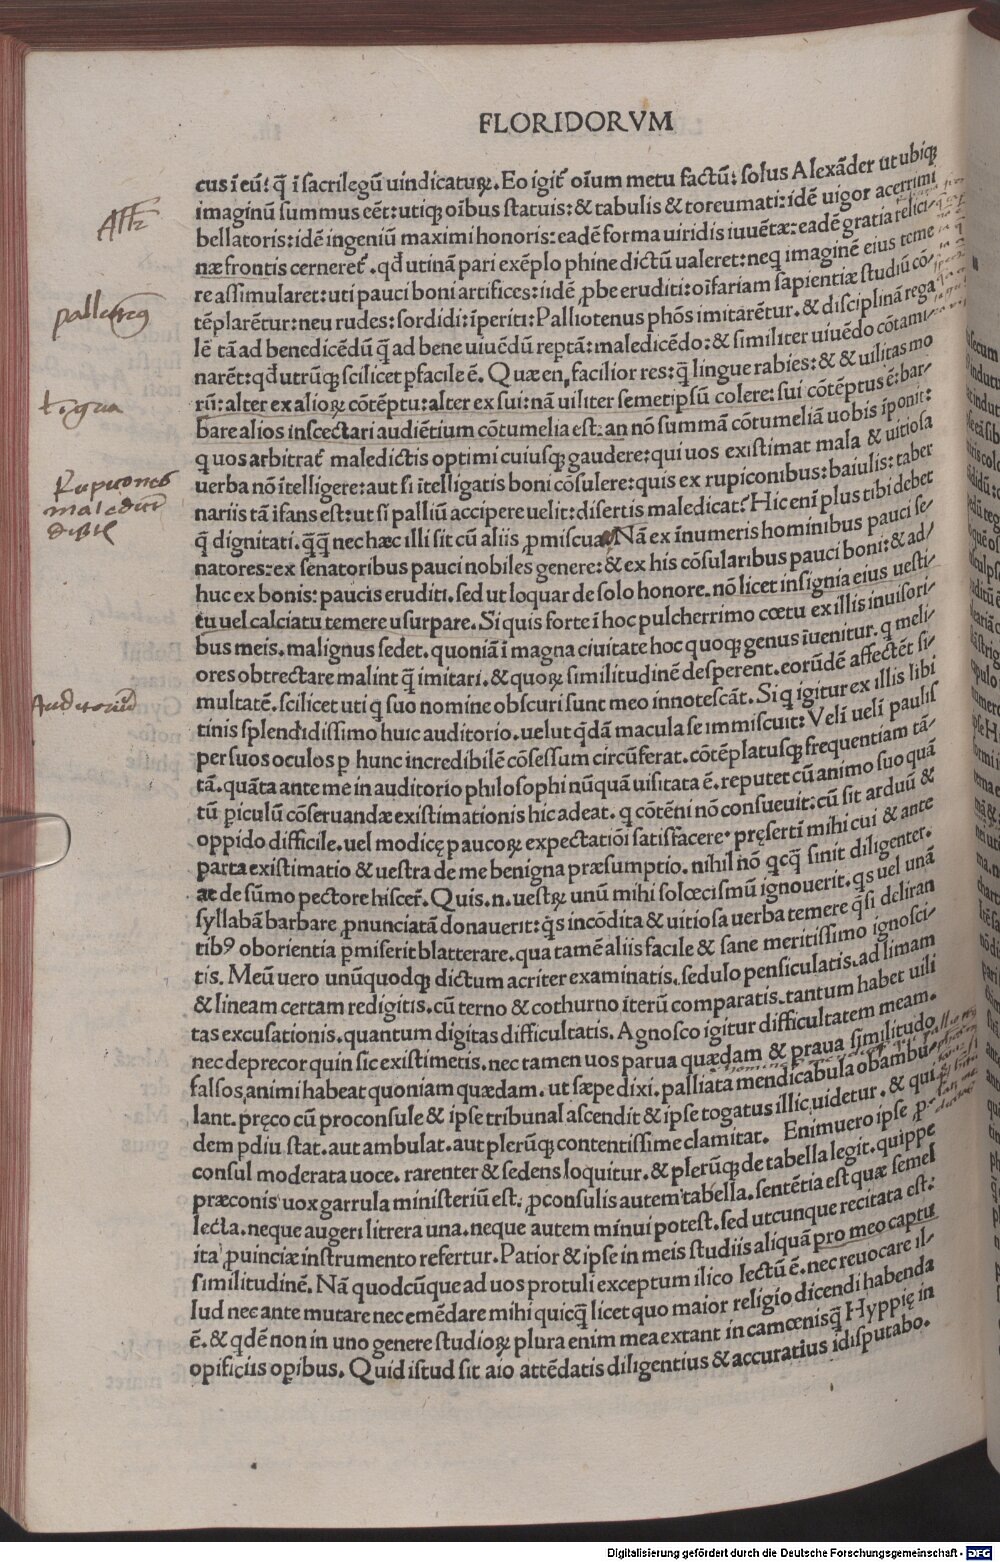 FLORIDORVM
cus ī eū: q̄ ī sacrilegū uindicaturꝝ. Eo igit᷑ oīum metu factū: solus Alexāder ut ubiqꝫ
imaginū summus eēt: utiqꝫ oībus statuis: & tabulis & toreumati: idē uigor acerrimi
bellatoris: idē ingeniū maximi honoris: eadē forma uiridis iuuētæ: eadē gratia felici⸗
næ frontis cerneret᷑. qđ utinā pari exēplo phine dictū ualeret: neqꝫ imaginē eius teme
re assimularet: uti pauci boni artifices: iidē ꝓbe eruditi: oīfariam sapientiæ studiū cō⸗
tēplarētur: neu rudes: sordidi: īperiti: Palliotenus phōs imitarētur. & disciplinā rega
lē tā ad benedicēdū q̄ ad bene uiuēdū reptā: maledicēdo: & similiter uiuēdo cōtami⸗
narēt: qđ utrūqꝫ scilicet ꝑfacile ē. Quæ en. facilior res: q̄ lingue rabies: & & uilitas mo
rū: alter ex alioꝝ cōtēptu: alter ex sui: nā uiliter semetipsū colere: sui cōtēptus ē: bar⸗
bare alios inscectari audiētium cōtumelia est: an nō summā cōtumeliā uobis īponit:
q uos arbitrat᷑ maledictis optimi cuiusqꝫ gaudere: qui uos existimat mala & uitiosa
uerba nō ītelligere: aut si ītelligatis boni cōsulere: quis ex rupiconibus: baiulis: taber
nariis tā īfans est: ut si palliū accipere uelit: disertis maledicat? Hic enī plus tibi debet
q̄ dignitati. q̄q̄ nec hæc illi sit cū aliis ꝓmiscua. Nā ex īnumeris hominibus pauci se⸗
natores: ex senatoribus pauci nobiles genere: & ex his cōsularibus pauci boni: & ad⸗
huc ex bonis: paucis eruditi. sed ut loquar de solo honore. nō licet insignia eius uesti⸗
tu uel calciatu temere usurpare. Si quis forte ī hoc pulcherrimo cœtu ex illis inuisori⸗
bus meis. malignus sedet. quoniā ī magna ciuitate hoc quoqꝫ genus īuenitur. q meli⸗
ores obtrectare malint q̄ imitari. & quoꝝ similitudinē desperent. eorūdē affectēt si⸗
multatē. scilicet uti q suo nomine obscuri sunt meo innotescāt. Si q igitur ex illis libi
tinis splendidissimo huic auditorio. uelut qdā macula se immiscuit: Velī uelī paulis
per suos oculos ꝑ hunc incredibilē cōsessum circūferat. cōtēplatusqꝫ frequentiam tā⸗
tā. quāta ante me in auditorio philosophi nūquā uisitata ē. reputet cū animo suo quā
tū ꝑiculū cōseruandæ existimationis hic adeat. q cōtēni nō consueuit: cū sit arduū &
oppido difficile. uel modicę paucoꝝ expectatiōi satisfacere. pręsertī mihi cui & ante
parta existimatio & uestra de me benigna præsumptio. nihil nō qcq̄ sinit diligenter.
ac de sūmo pectore hiscer̄. Quis .n. uestrꝝ unū mihi solœcismū ignouerit. qs uel unā
syllabā barbare ꝓnunciatā donauerit: q̄s incōdita & uitiosa uerba temere q̄si deliran
tibꝰ oborientia ꝑmiserit blatterare. qua tamē aliis facile & sane meritissimo ignosci⸗
tis. Meū uero unūquodqꝫ dictum acriter examinatis. sedulo pensiculatis. ad limam
& lineam certam redigitis. cū terno & cothurno īterū comparatis. tantum habet uili
tas excusationis. quantum digitas difficultatis. Agnosco igitur difficultatem meam.
nec deprecor quin sic existimetis. nec tamen uos parua quædam & praua similitudo
falsos animi habeat quoniam quædam. ut sæpe dixi. palliata mendicabula obambu⸗
lant. pręco cū proconsule & ipse tribunal ascendit & ipse togatus illic uidetur. & qui⸗
dem pdiu stat. aut ambulat. aut plerūqꝫ contentissime clamitat. Enimuero ipse ꝓ⸗
consul moderata uoce. rarenter & sedens loquitur. & plerūqꝫ de tabella legit. quippe
præconis uox garrula ministeriū est. ꝓconsulis autem tabella. sentētia est quæ semel
lecta. neque augeri litrera una. neque autem minui potest. sed utcunque recitata est:
ita ꝓuinciæ instrumento refertur. Patior & ipse in meis studiis aliquā pro meo captu
similitudinē. Nā quodcūque ad uos protuli exceptum ilico lectū ē. nec reuocare il⸗
lud nec ante mutare nec emēdare mihi quicq̄ licet quo maior religio dicendi habenda
ē. & qdē non in uno genere studioꝝ plura enim mea extant in camœnis q̄ Hyppię in
opificiis opībus. Quid istud sit aio attēdatis diligentius & accuratius īdisputabo.
Rupicones
Auditoriū
Digitalisierung gefördert durch die Deutsche Forschungsgemeinschaft - DFG